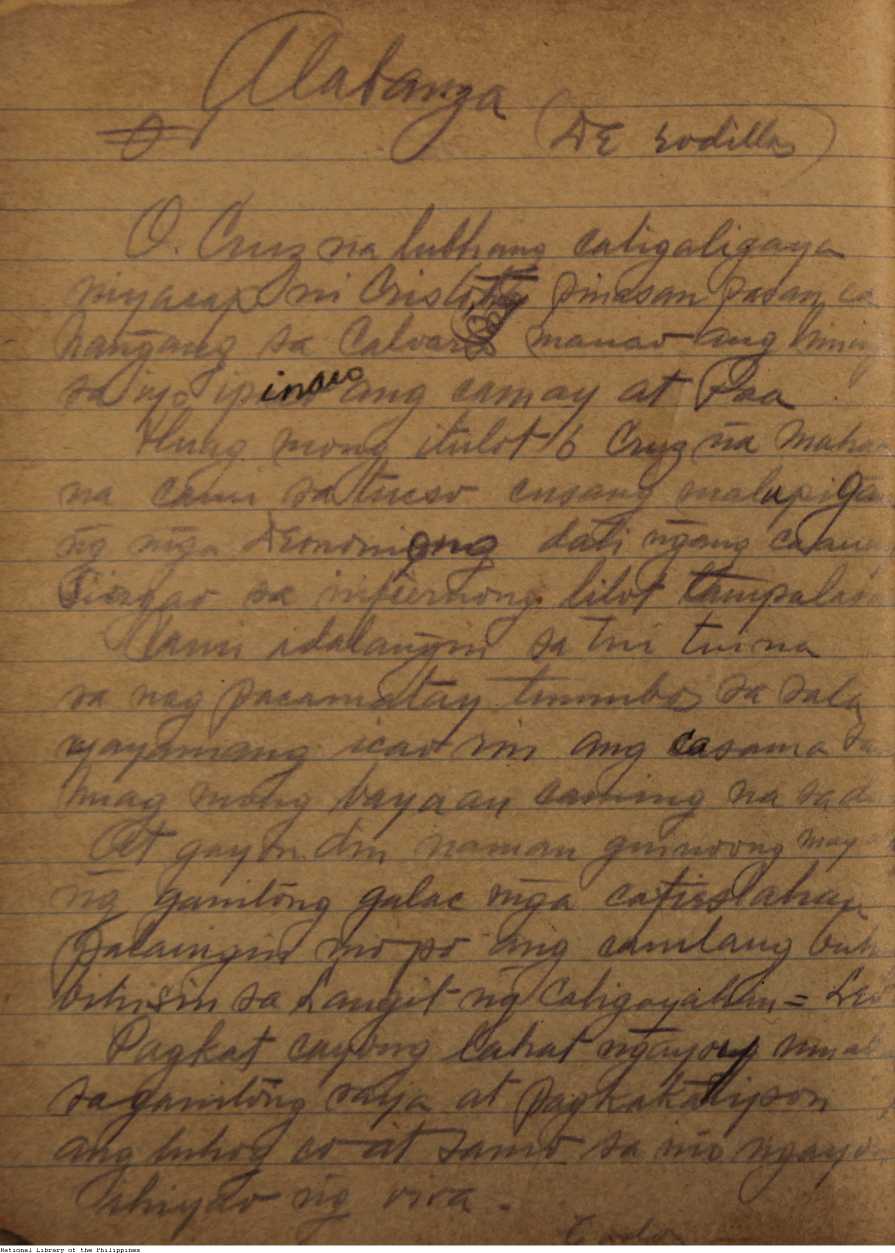 Alabanza
(DE rodillas)
O. Cruz na lubhang caligaligaya
niyacap ni Cristo pinasan pasan ca
hangang sa Calvar manao ang
sa iyo ipinaco ang camay at Paa
Huag mong itulot ó Cruz na mahal
na cami sa tucso cusang malupiga
ng mga DEmoniong dati ngang caaua
Siargao sa infiernong lilot tampalasa
Cami idalangin sa tui tui na
sa nag pacamatay tumubos sa sala
yayamang icao rin ang casama sa
huag mong bayaan caming na sa d
At gayon din naman guinoong may
ng ganitóng galac mga cafiestahan
palauigin mo po ang canilang buh
bihisin sa Langit ng Caligayahan =
Pagkat cayong lahat ngayong
sa ganitóng saya at pagkakatipon
ang luhog co at samo sa inio ngayo
ihiyao ng viva.